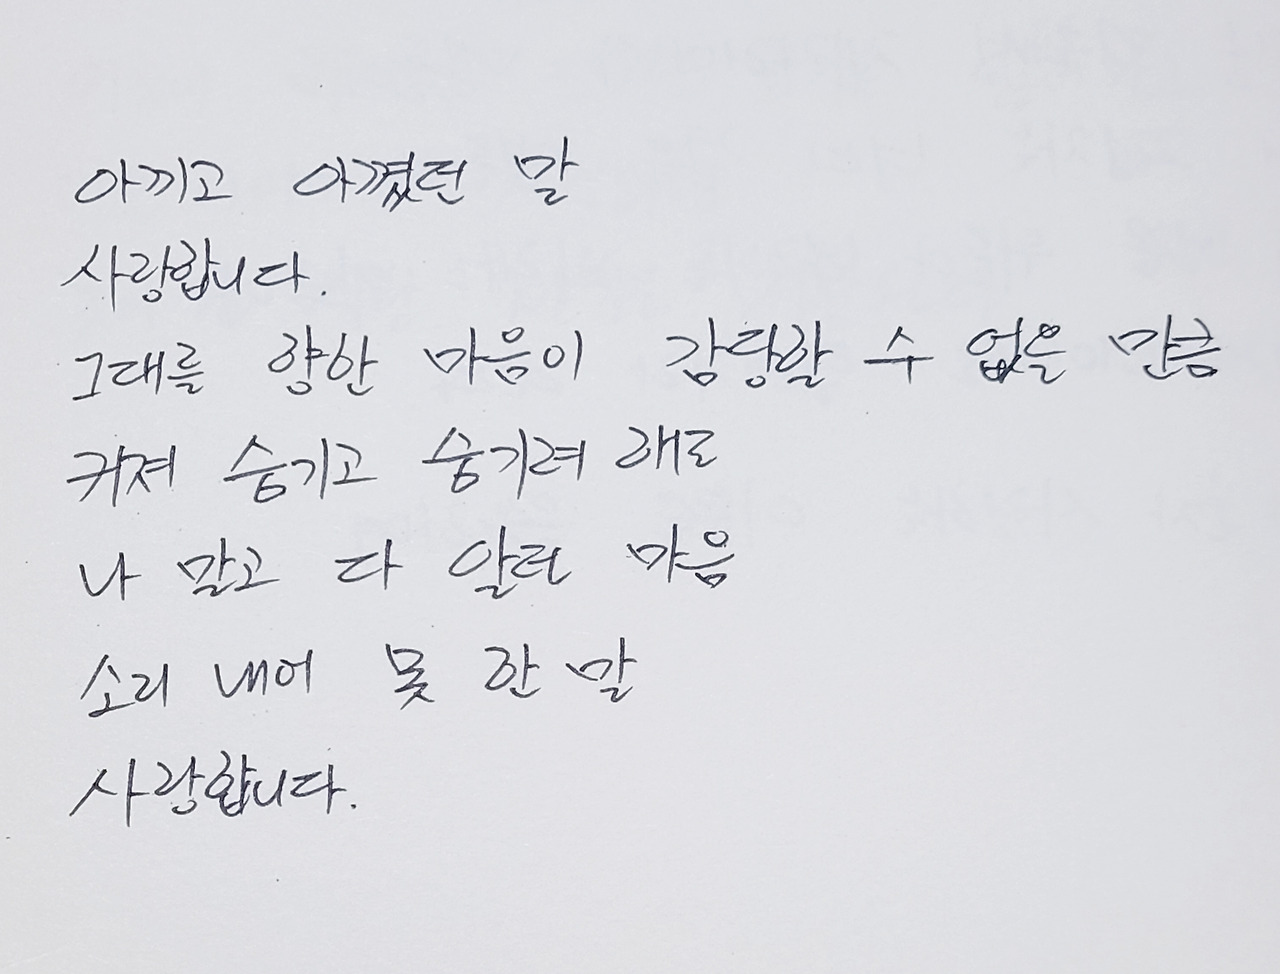 아끼고 아꼈던 말
사랑합니다.
그대를 향한 마음이 감당할 수 없을 만큼
커져 숨기고 숨기려 래도
나 말고 다 알던 마음
소리 내어 못 한 말
사랑합니다.